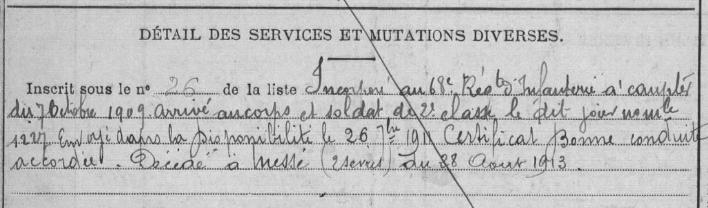 DÉTAIL DES SERVICES ET MUTATIONS DIVERSES.
Inscrit sous le nº 26 de la liste Incorporé au 68e Régt d'Infanterie à compter
du 7 Octobre 1909 arrivé au corps et soldat de 2e classe le dit jour nº mle
4227 Envoyé dans la disponibilité le 26 7bre 1911 Certificat Bonne conduite
accordé. Décédé à Messé (2 Sèvres) du 28 Aout 1913.